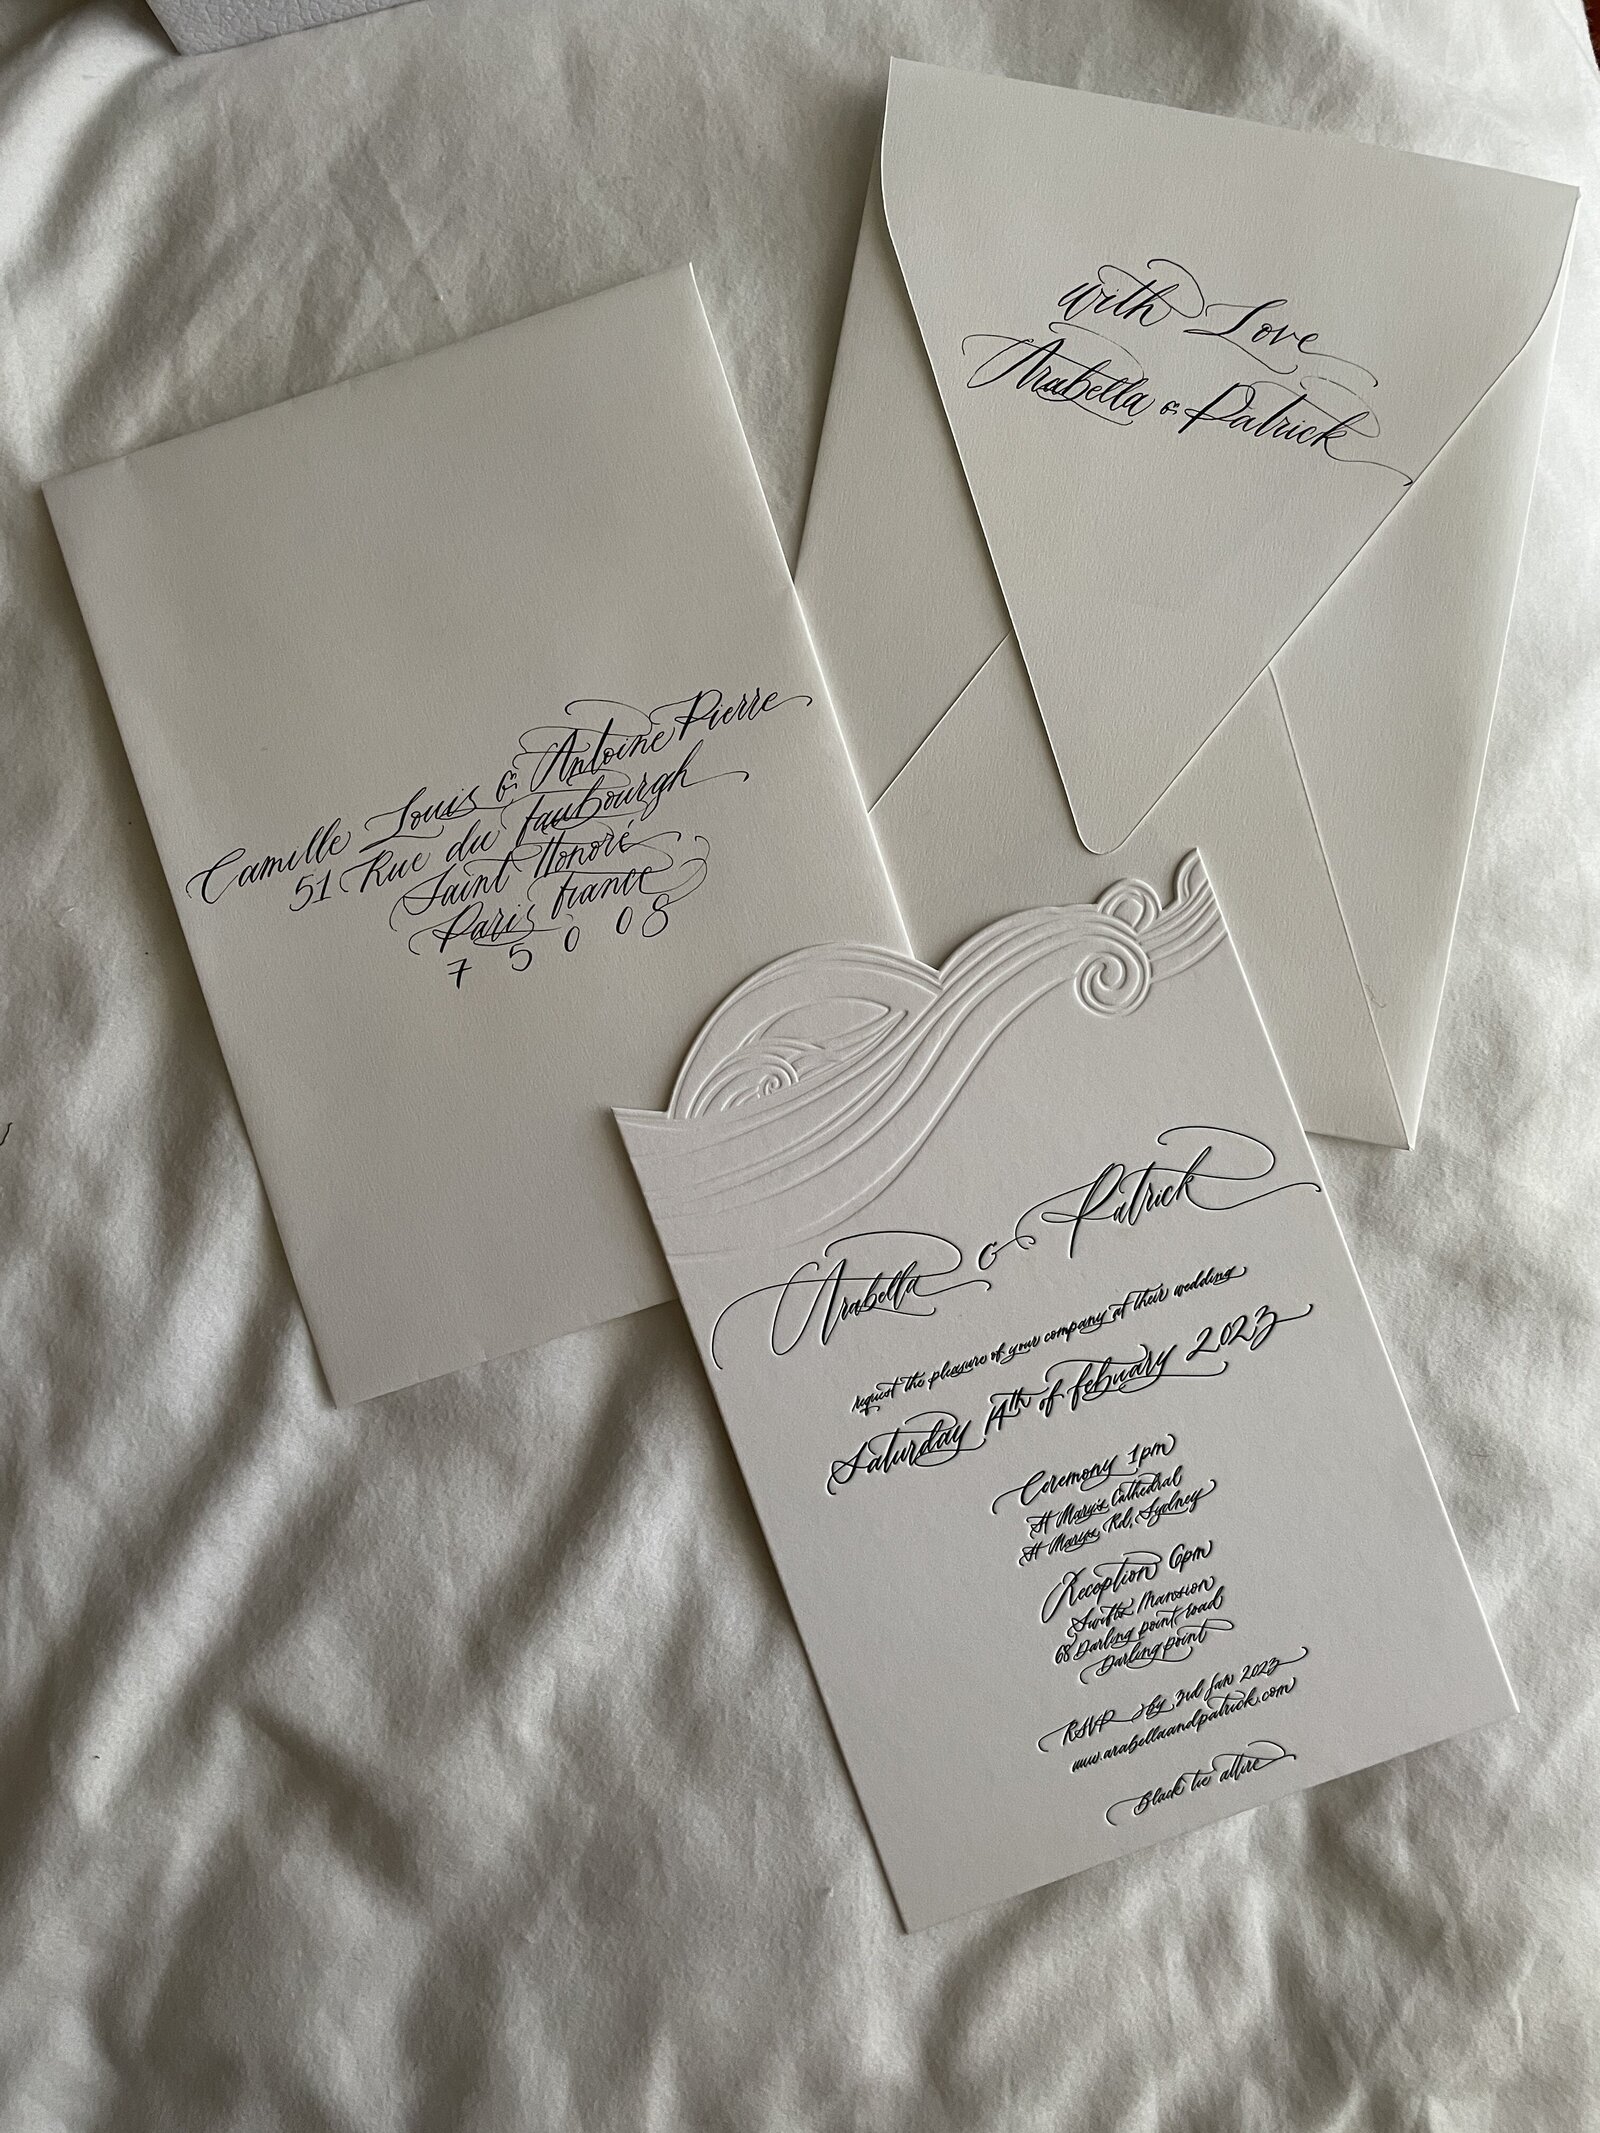 with Love
Arabella & Patrick
Camille Louis & Antoine Pierre
51 Rue du Faubourgh
Saint Honoré
Paris France
75008
Arabella & Patrick
request the pleasure of your company at their wedding
Saturday 14th of Febuary 2023
Ceremony 1pm
St Marys Cathedral
St Marys Rd, Sydney
Reception 6pm
Swifts Mansion
68 Darling point road
Darling point
RSVP by 3rd Jan 2023
www.arabellaandpatrick.com
Black tie attire